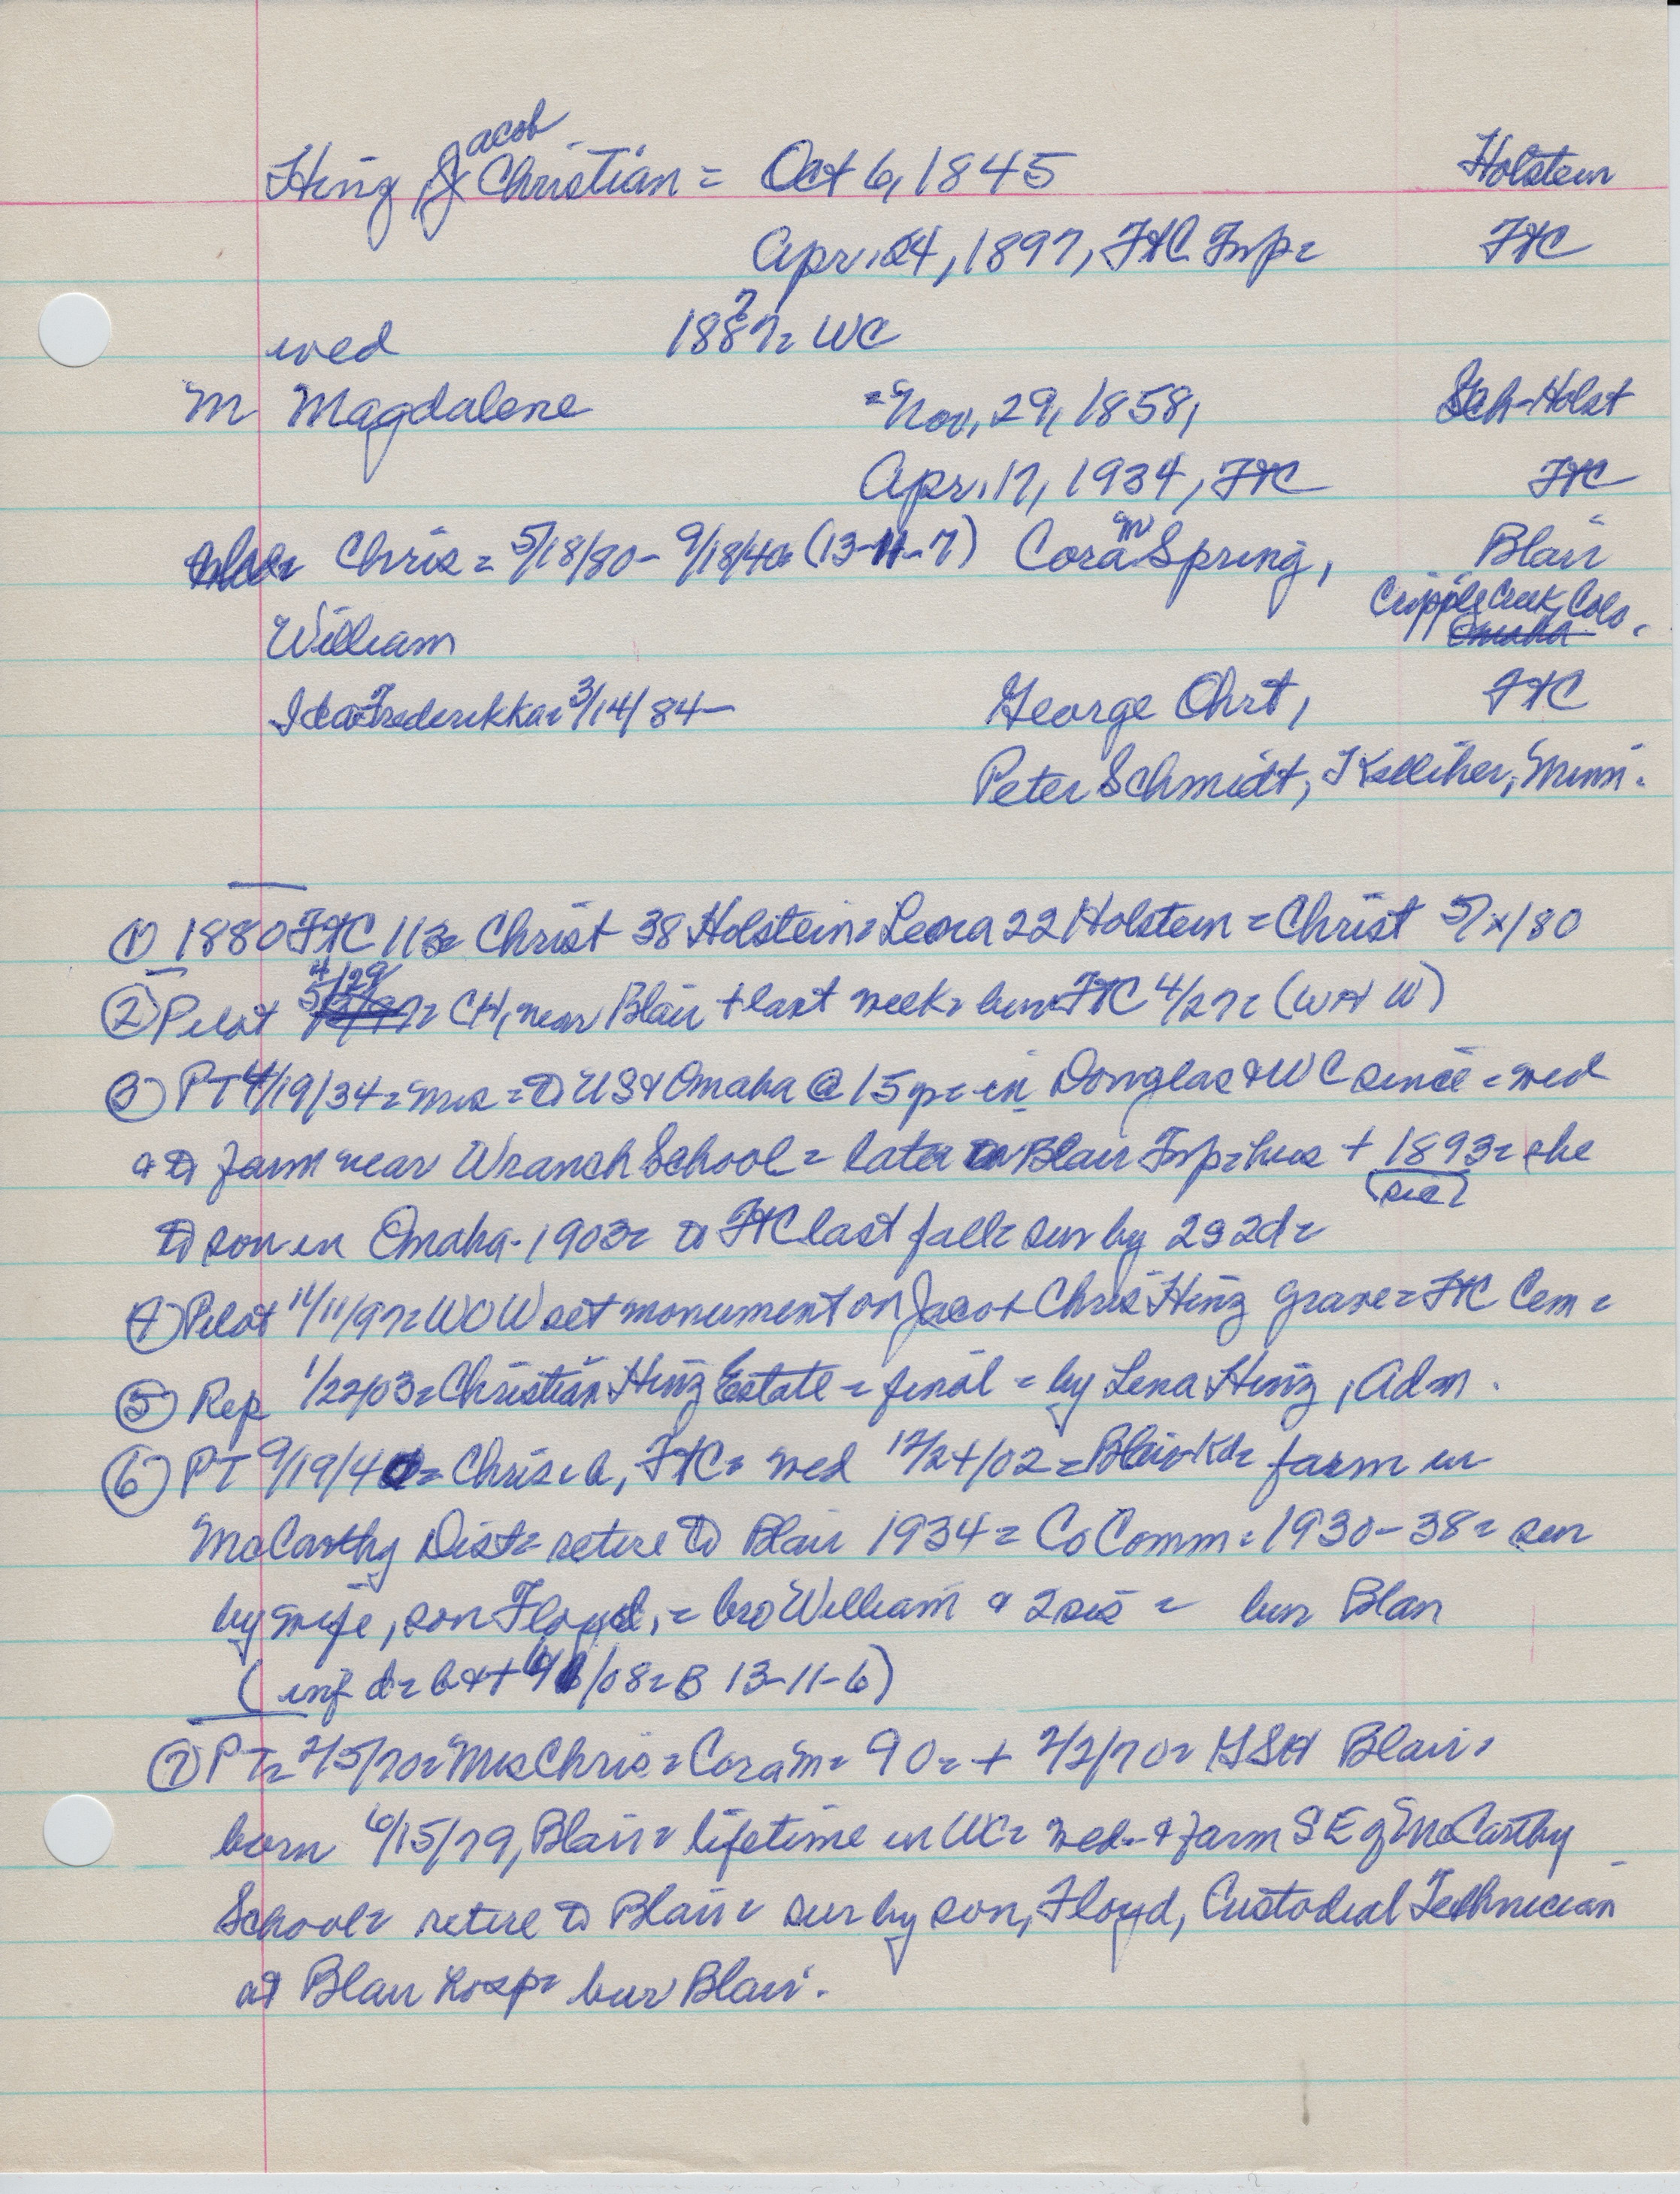 Hinz, Jacob Christian = Oct 6, 1845 Holstein
Apr. 24, 1897, FtC Twp = FtC
wed 188?7 = WC
M Magdalene = Nov, 29, 1858, Sch-Holst
Apr. 17, 1934, FtC FtC
Chris = 5/18/80 - 9/18/40 (13-11-7) Cora M Spring, Blair
William Cripple Creek, Colo. Omaha
Ida Frederikka = 3/14/84 - George Ohrt, FtC
Peter Schmidt, Kelliher, Minn.
① 1880 FtC 113 = Christ 38 Holstein = Leora 22 Holstein = Christ 5/x/80
② Pilot 4/29 = CH, near Blair + last week = bur FtC 4/27 = (WOW)
③ PT 4/19/34 = Mrs = to US & Omaha @ 15 y = in Douglas & WC since = wed
& to farm near Wranch School = later to Blair Twp = hus + 1893 = she
(sic)
to son in Omaha - 1903 = to FtC last fall = sur by 2s 2d =
④ Pilot 11/11/97 = WOW set monument on Jacob Chris Hinz grave = FtC Cem =
⑤ Rep 1/22/03 = Christian Hinz Estate = final = by Lena Hinz, Adm.
⑥ PT 9/19/40 = Chris = b, FtC = wed 12/24/02 = Blair = farm in
McCarthy Dist = retire to Blair 1934 = Co Comm = 1930-38 = sur
by wife, son Floyd, = bro William & 2 sis = bur Blair
(inf d = b & + /08 = B 13-11-6)
⑦ PT = 2/5/70 = Mrs Chris = Cora M = 90 = + 2/2/70 = GSH Blair =
born 6/15/79, Blair = lifetime in WC = wed = & farm SE of McCarthy
School = retire to Blair = sur by son, Floyd, Custodial Technician
at Blair Hosp = bur Blair.